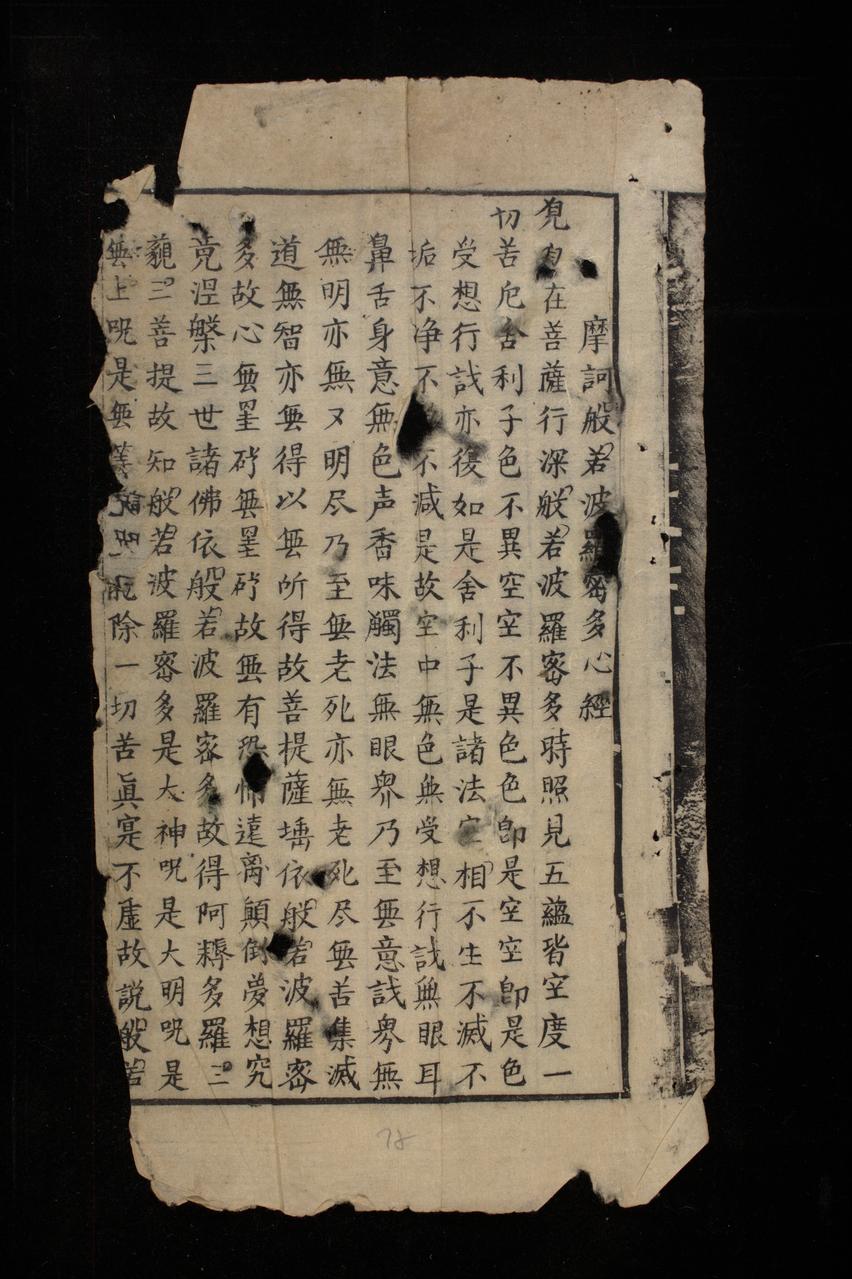 摩訶般若波羅密多心經
在菩薩行深般若波羅密多時照見五蘊皆空度一
切苦厄舍利子色不異空空不異色色即是空空即是色
受想行識亦復如是舍利子是諸法空相不生不滅不
垢不净不不减是故空中無色無受想行識無眼耳
鼻舌身意無色声香味觸法無眼界乃至無意識界無
無明亦無无明尽乃至無老死亦無老死尽無苦集滅
道無智亦無得以無所得故菩提薩埵依般若波羅密
多故心無罣碍無罣碍故無有恐怖遠离顛倒夢想究
竟涅槃三世諸佛依般若波羅密多故得阿耨多羅三
藐三菩提故知般若波羅密多是大神呪是大明呪是
無上呪是無等除一切苦真寔不虛故説般若